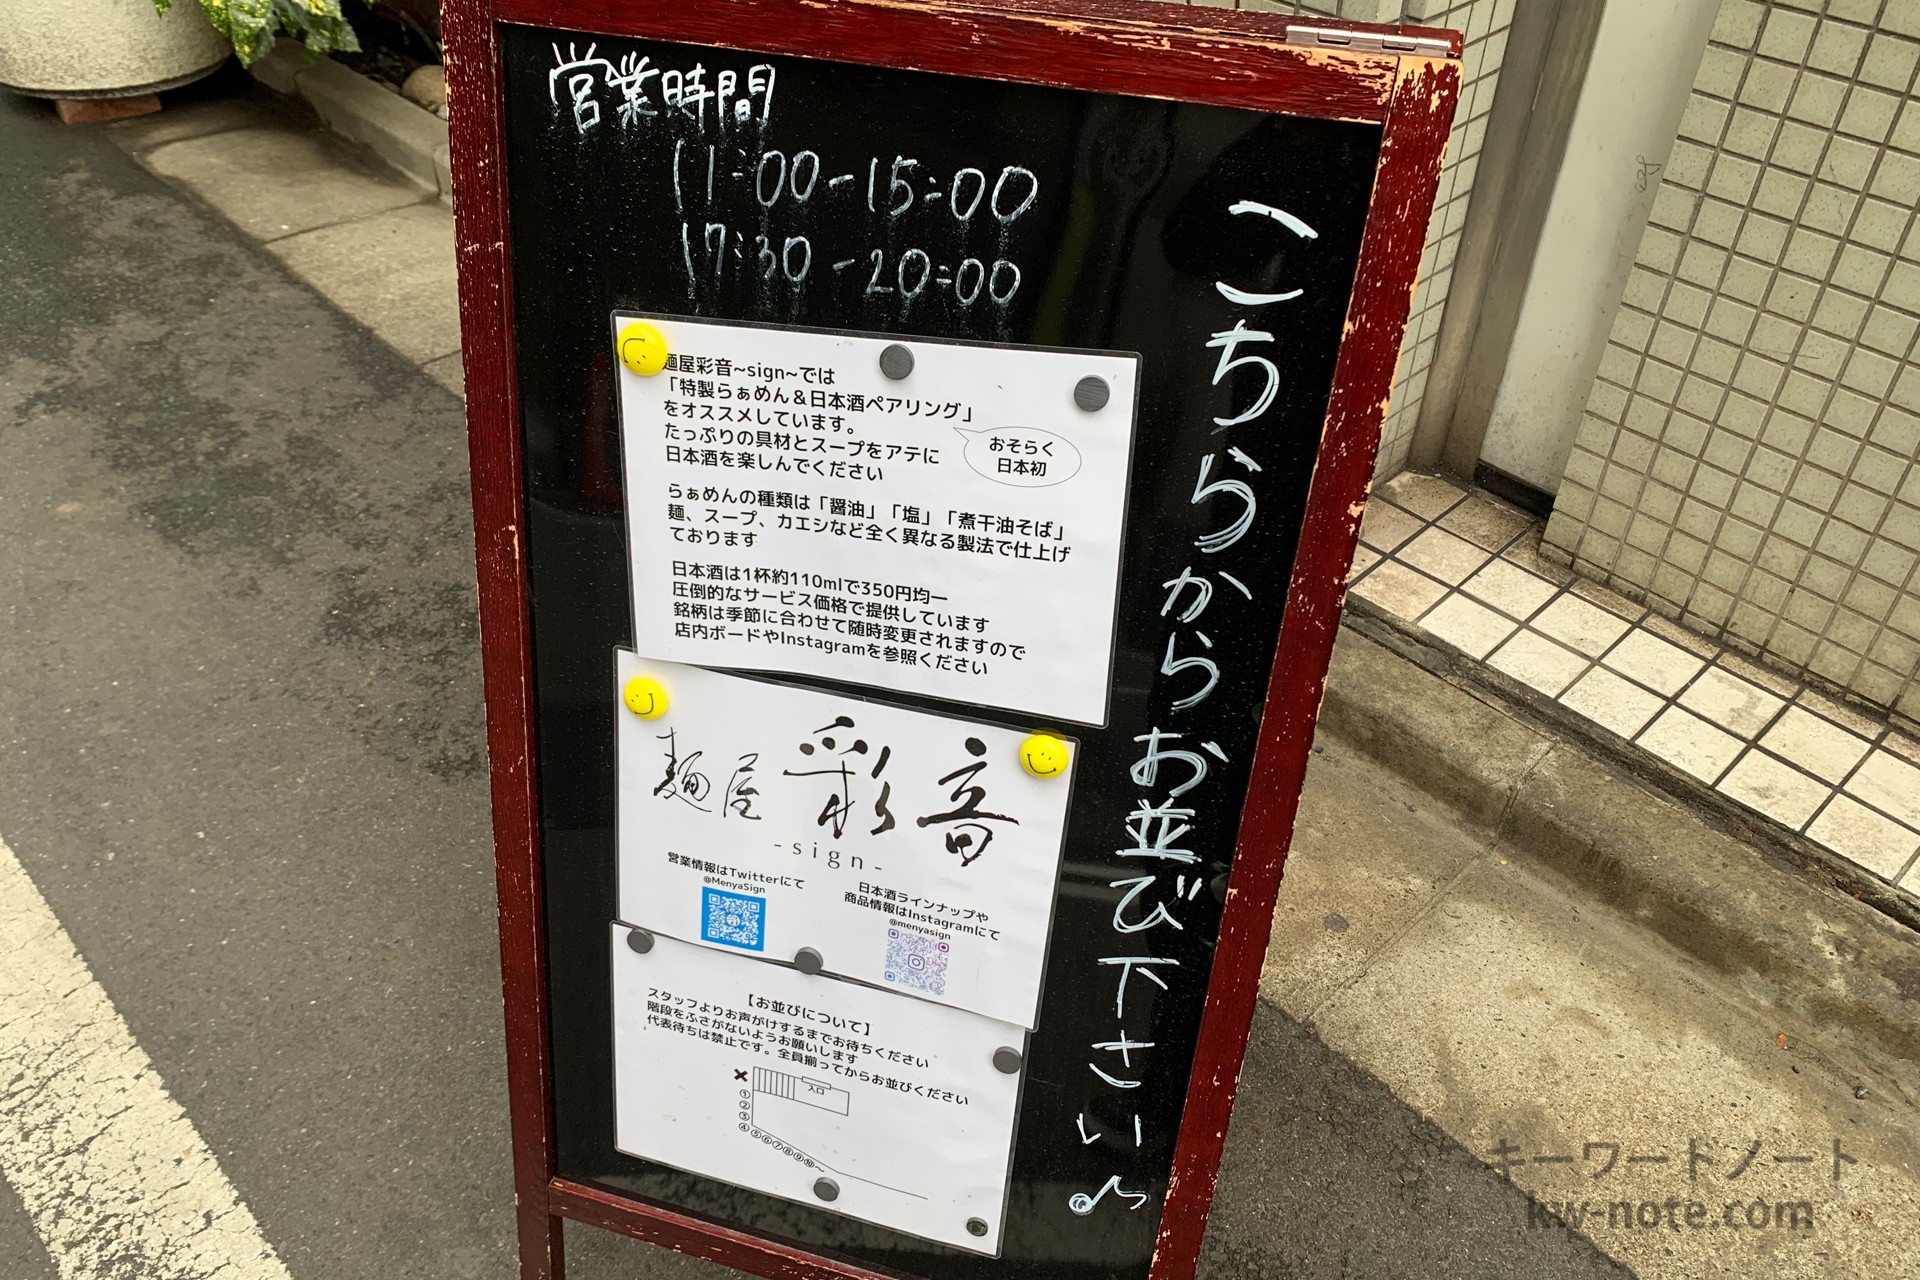 営業時間
11:00-15:00
17:30-20:00
こちらからお並び下さい♪
麺屋彩音~sign~では
「特製らぁめん＆日本酒ペアリング」
をオススメしています。
たっぷりの具材とスープをアテに
日本酒を楽しんでください
おそらく
日本初
らぁめんの種類は「醤油」「塩」「煮干油そば」
麺、スープ、カエシなど全く異なる製法で仕上げ
ております
日本酒は1杯約110mlで350円均一
圧倒的なサービス価格で提供しています
銘柄は季節に合わせて随時変更されますので
店内ボードやInstagramを参照ください
麺屋 彩音
-sign-
営業情報はTwitterにて
@MenyaSign
日本酒ラインナップや
商品情報はInstagramにて
@menyasign
【お並びについて】
スタッフよりお声がけするまでお待ちください
階段をふさがないようお願いします
代表待ちは禁止です。全員揃ってからお並びください
×
入口
①
②
③
④⑤⑥⑦⑧⑨⑩～
キーワードノート
kw-note.com